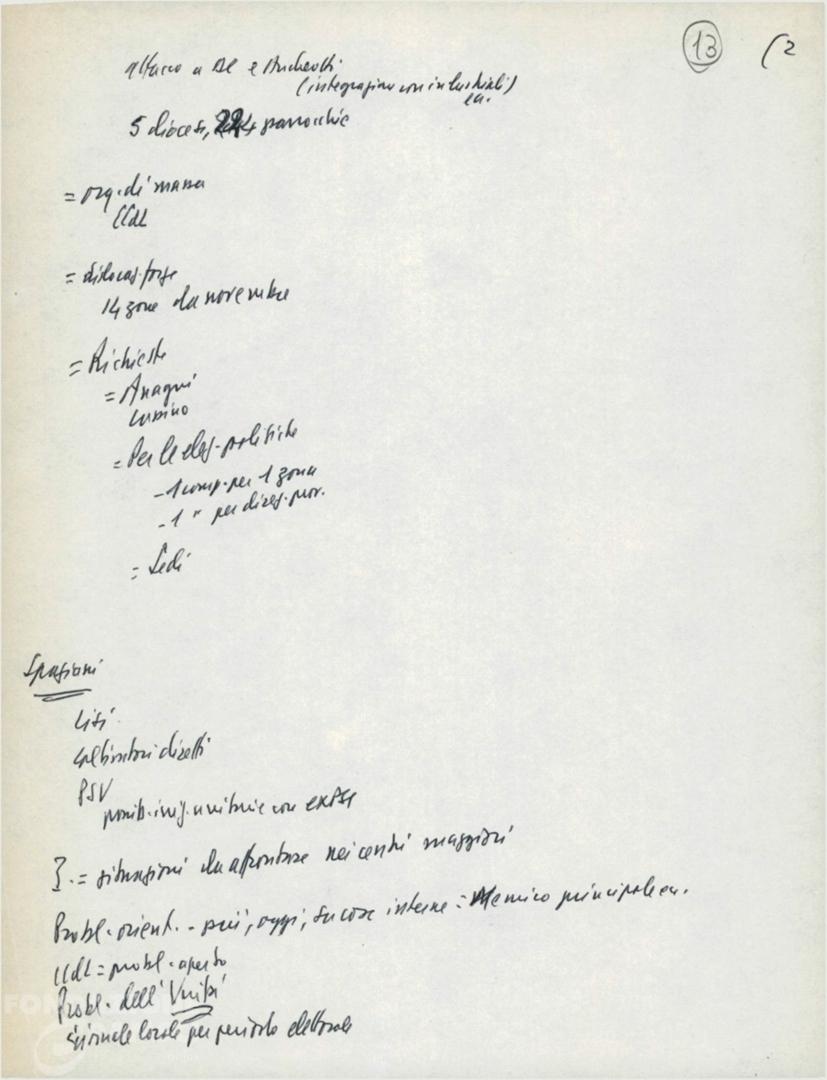 13 (2
attacco a DC e Andreotti
(integrazione con industriali)
ecc.
5 diocesi, 224 parrocchie
= org. di massa
CCdL
= dislocaz. forze
14 zone da novembre
= Richieste
= Anagni
Cassino
= Per le elez. politiche
- 1 comp. per 1 zona
- 1 " per direz. prov.
= Sedi
Spaziani
Lisi
coltivatori diretti
PSU
possib. iniz. unitarie con exPSI
= situazioni da affrontare nei centri maggiori
Probl. orient. - più, oggi, su cose interne = Nemico principale ecc.
CCdL = probl. aperto
Probl. dell'Unità
giornale locale per periodo elettorale
FON